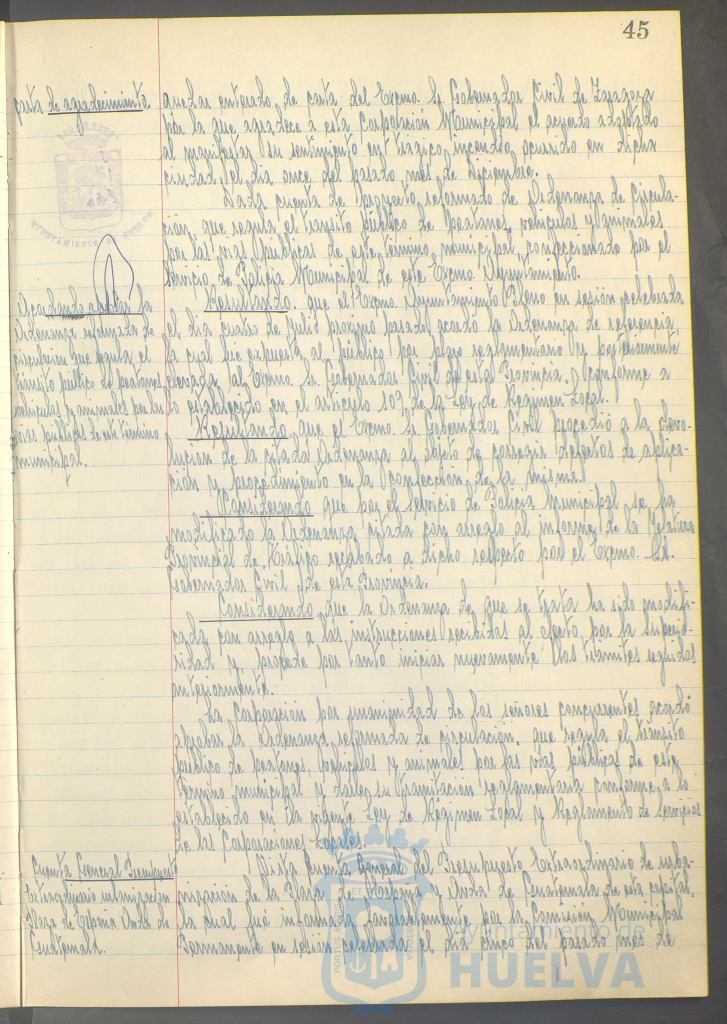 45
carta de agradecimiento
quedar enterado de carta del Excmo. Sr. Gobernador Civil de Zaragoza
por la que agradece a esta Corporación Municipal el acuerdo adoptado
al manifestar su sentimiento en trágico incendio, ocurrido en dicha
ciudad, el día once del pasado mes de Diciembre.
Dada cuenta de Proyecto reformado de Ordenanza de Circula-
ción, que regula el tránsito público de peatones, vehículos y animales
por las vías públicas de este término municipal, confeccionado por el
Servicio de Policía Municipal de este Excmo. Ayuntamiento.
Acordando la
Ordenanza reformada de
circulación que regula el
tránsito público de peatones,
vehículos y animales por las
vías públicas de este término
municipal.
Resultando que el Excmo. Ayuntamiento Pleno en sesión celebrada
el día cuatro de Julio próximo pasado, acordó la Ordenanza de referencia
la cual fue expuesta al público por plazo reglamentario y posteriormente
elevada al Excmo. Sr. Gobernador Civil de esta Provincia, conforme a
lo establecido en el artículo 109 de la Ley de Régimen Local.
Resultando que el Excmo. Sr. Gobernador Civil procedió a la devo-
lución de la citada Ordenanza al objeto de corregir defectos de aplica-
ción y procedimiento en la confección de la misma.
Considerando que por el Servicio de Policía Municipal se ha
modificado la Ordenanza citada con arreglo al informe de la Jefatura
Provincial de Tráfico recabado a dicho respecto por el Excmo. Sr.
Gobernador Civil de esta Provincia.
Considerando que la Ordenanza de que se trata ha sido modifi-
cada con arreglo a las instrucciones recibidas al efecto, por la Superio-
ridad y procede por tanto iniciar nuevamente los trámites seguidos
anteriormente.
La Corporación por unanimidad de los señores concurrentes acordó
aprobar la Ordenanza reformada de circulación, que regula el tránsito
público de peatones, vehículos y animales por las vías públicas de este
término municipal y darle su tramitación reglamentaria conforme a lo
establecido en la vigente Ley de Régimen Local y Reglamento de Servicios
de las Corporaciones Locales.
Cuenta General Presupuesto
Extraordinario urbanización
Plaza de España Avda. de
Guatemala.
Vista Cuenta General del Presupuesto Extraordinario de urba-
nización de la Plaza de España y Avda de Guatemala de esta capital,
la cual fué informada favorablemente por la Comisión Municipal
Permanente en sesión celebrada el día cinco del pasado mes de
Ayuntamiento de
HUELVA